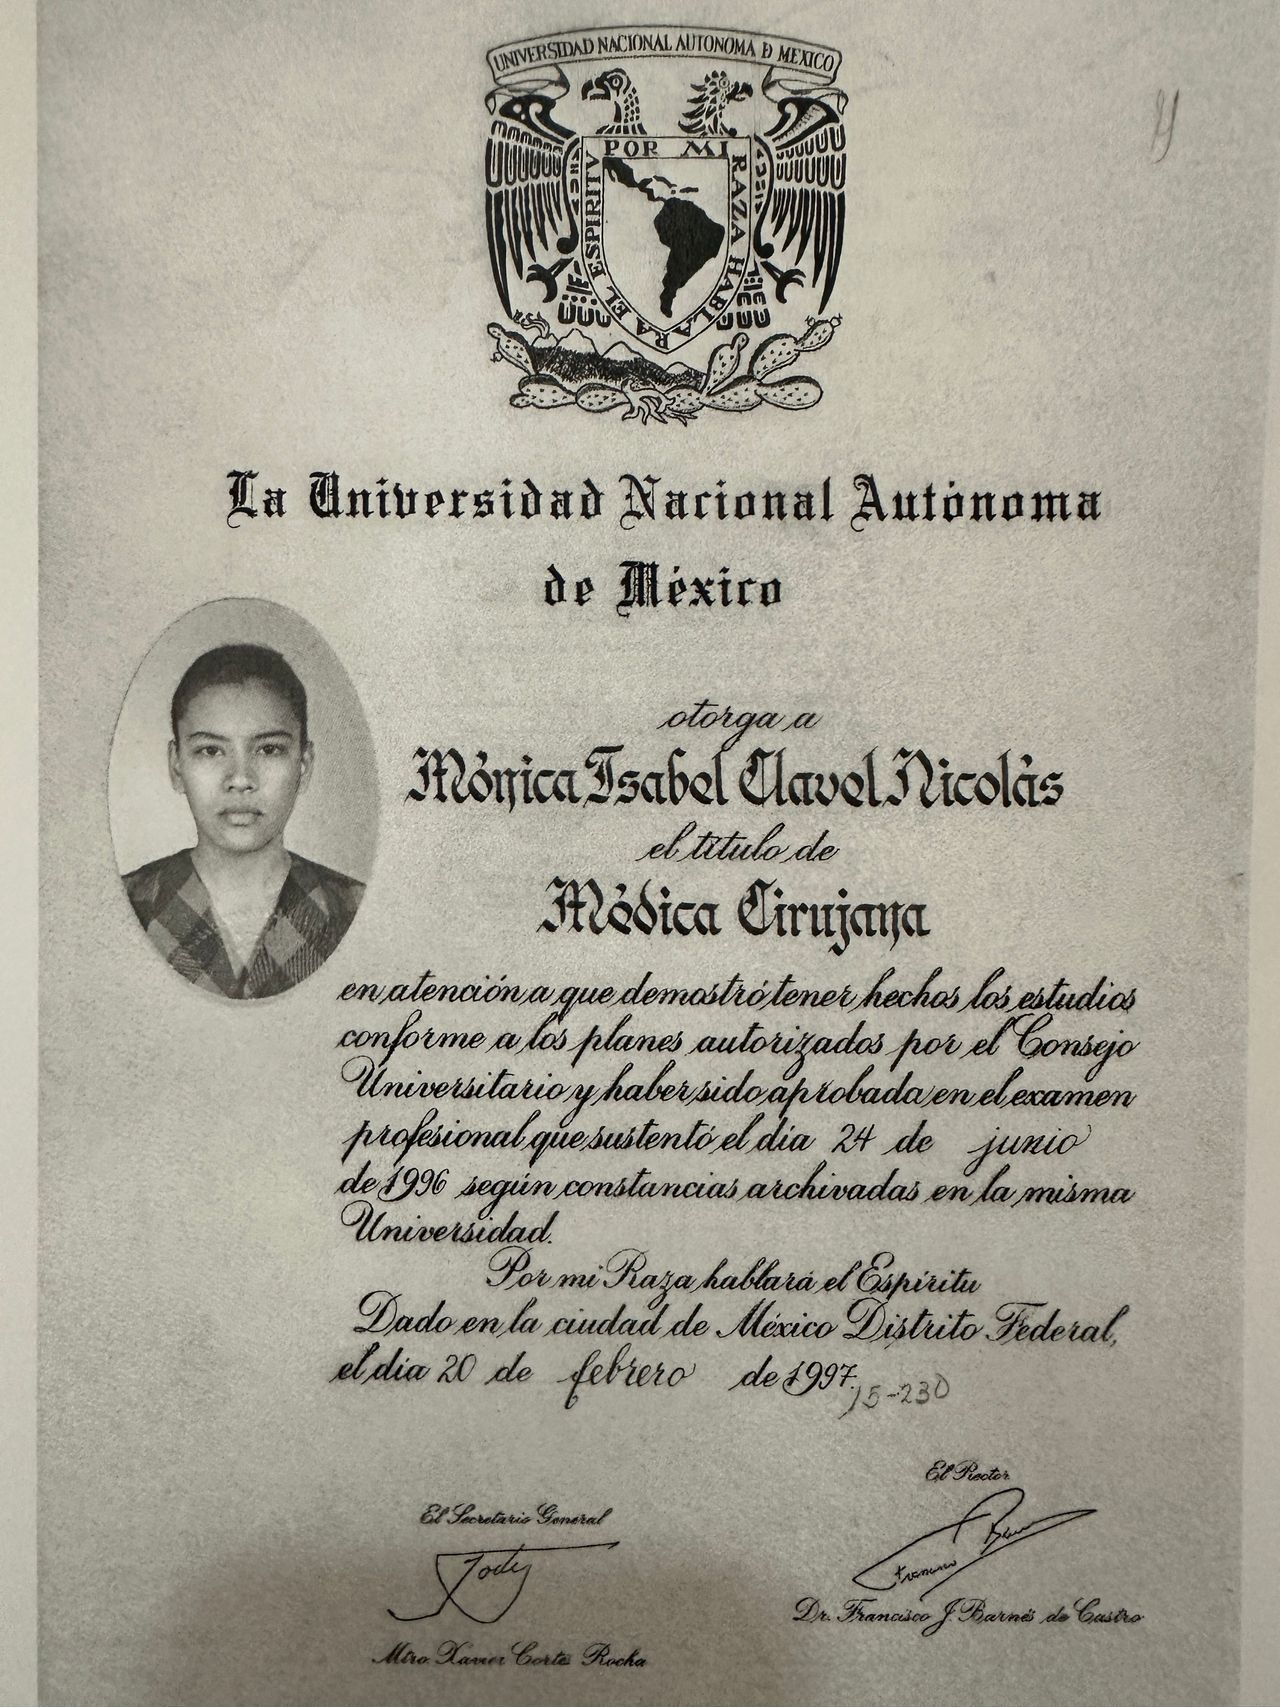 UNIVERSIDAD NACIONAL AUTONOMA D MEXICO
POR MI RAZA HABLARA EL ESPIRITU
La Universidad Nacional Autónoma
de México
otorga a
Mónica Isabel Clavel Nicolás
el título de
Médica Cirujana
en atención a que demostró tener hechos los estudios
conforme a los planes autorizados por el Consejo
Universitario y haber sido aprobada en el examen
profesional que sustentó el día 24 de junio
de 1996 según constancias archivadas en la misma
Universidad.
Por mi Raza hablará el Espíritu
Dado en la ciudad de México Distrito Federal,
el día 20 de febrero de 1997.
15-230
El Rector
El Secretario General
Dr. Francisco J. Barnés de Castro
Mtro. Xavier Cortés Rocha